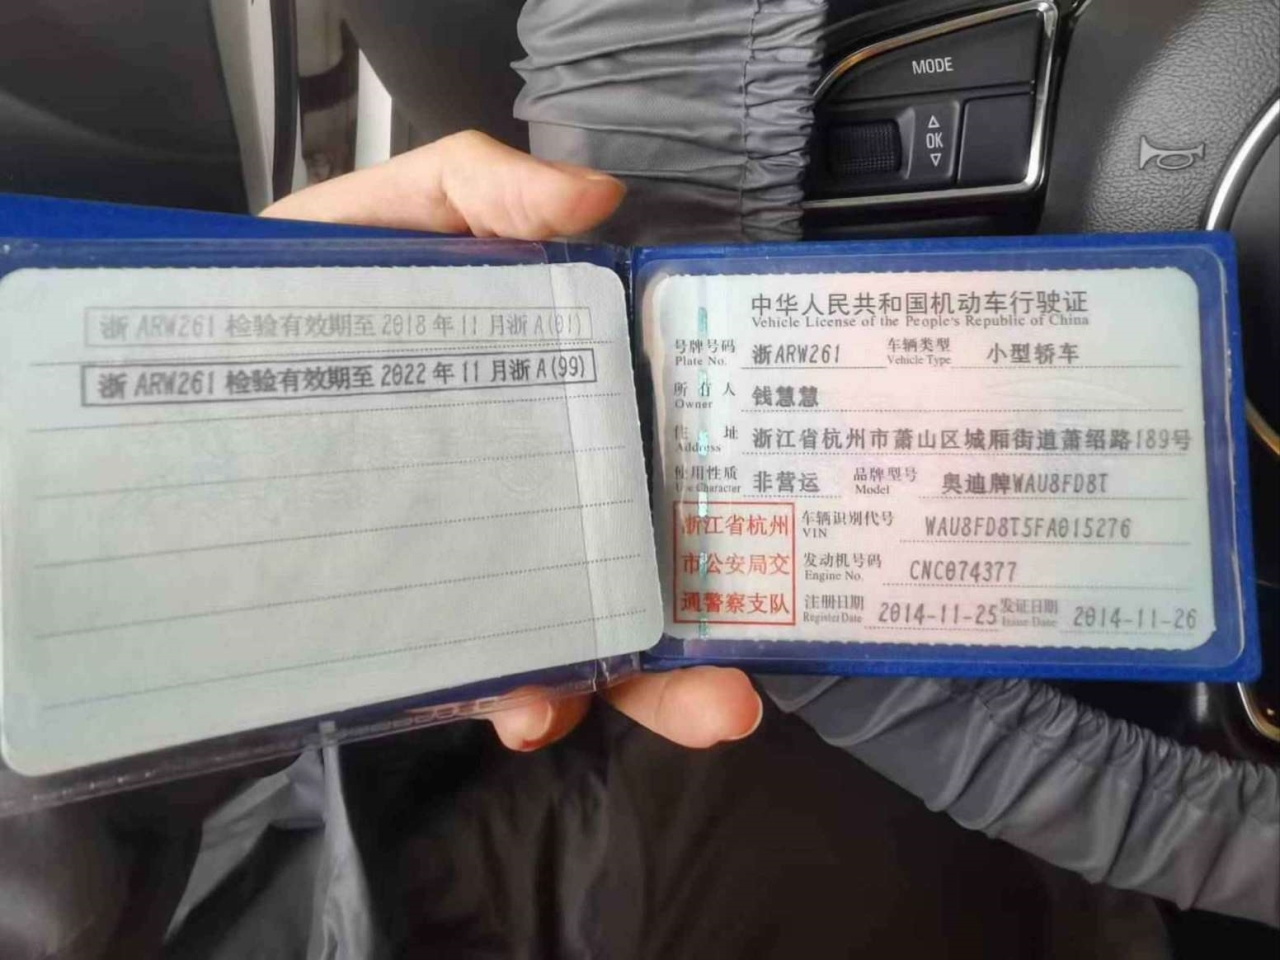 MODE
OK
浙 ARW261 检验有效期至 2018 年 11 月浙 A(01)
浙 ARW261 检验有效期至 2022 年 11 月浙 A(99)
中华人民共和国机动车行驶证
Vehicle License of the People's Republic of China
号牌号码 浙ARW261 车辆类型 小型轿车
Plate No. Vehicle Type
所有人 钱慧慧
Owner
住址 浙江省杭州市萧山区城厢街道萧绍路189号
Address
使用性质 非营运 品牌型号 奥迪牌WAU8FD8T
Use Character Model
浙江省杭州
市公安局交
通警察支队
车辆识别代号 WAU8FD8T5FA015276
VIN
发动机号码 CNC074377
Engine No.
注册日期 2014-11-25 发证日期 2014-11-26
Register Date Issue Date